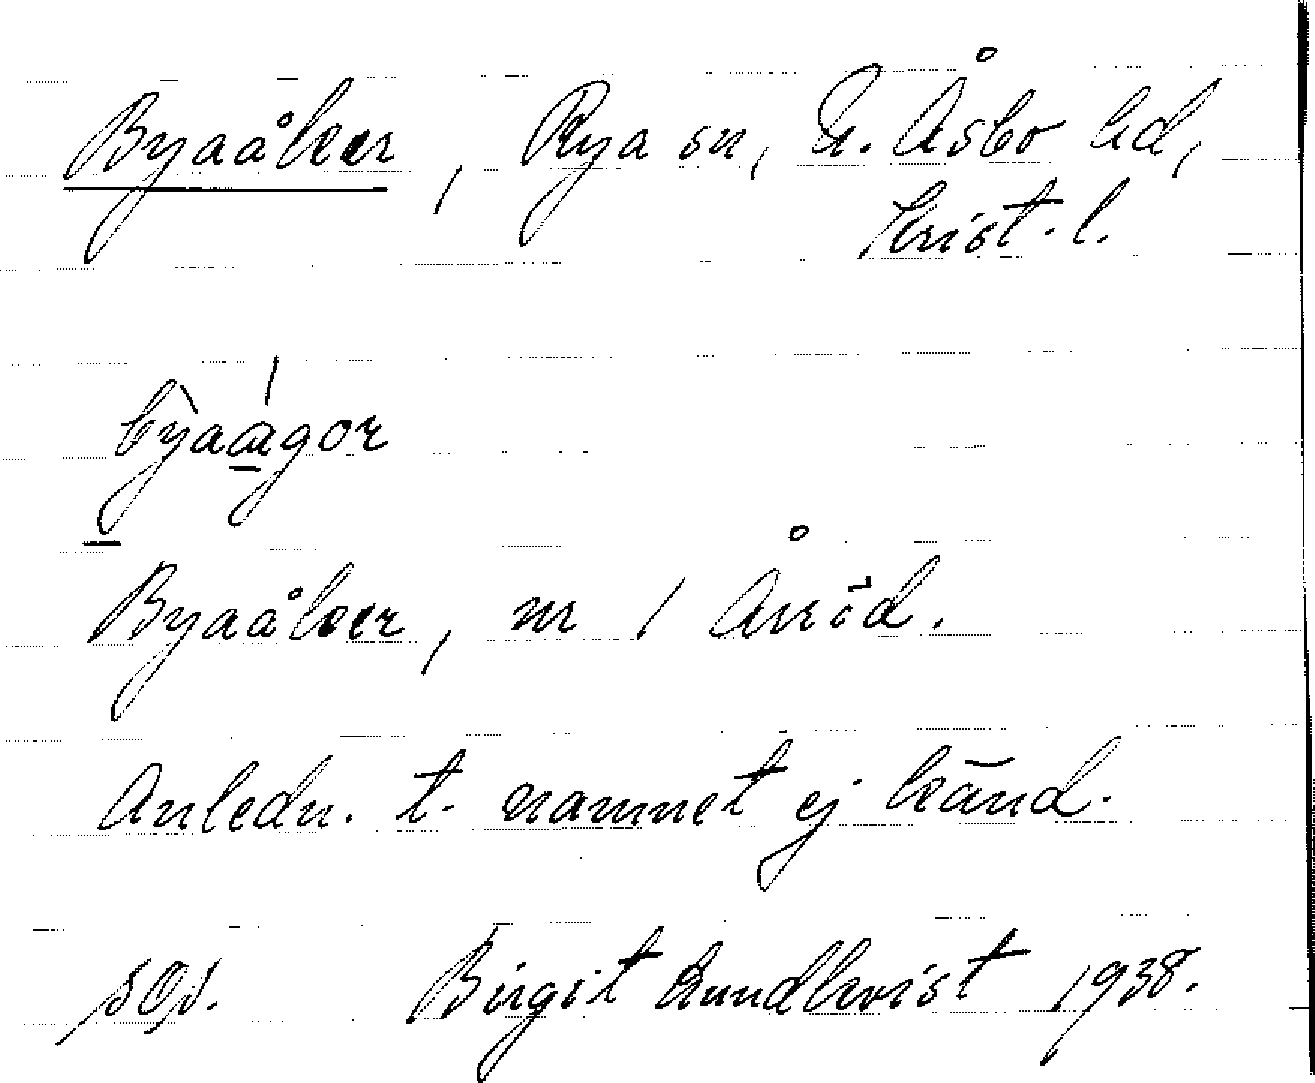 Byaåker, Rya sn, N. Åsbo hd,
Krist. l.
Byaåker, nr 1 Årröd.
Anledn. t. namnet ej känd.
Birgit Lundkvist 1938.